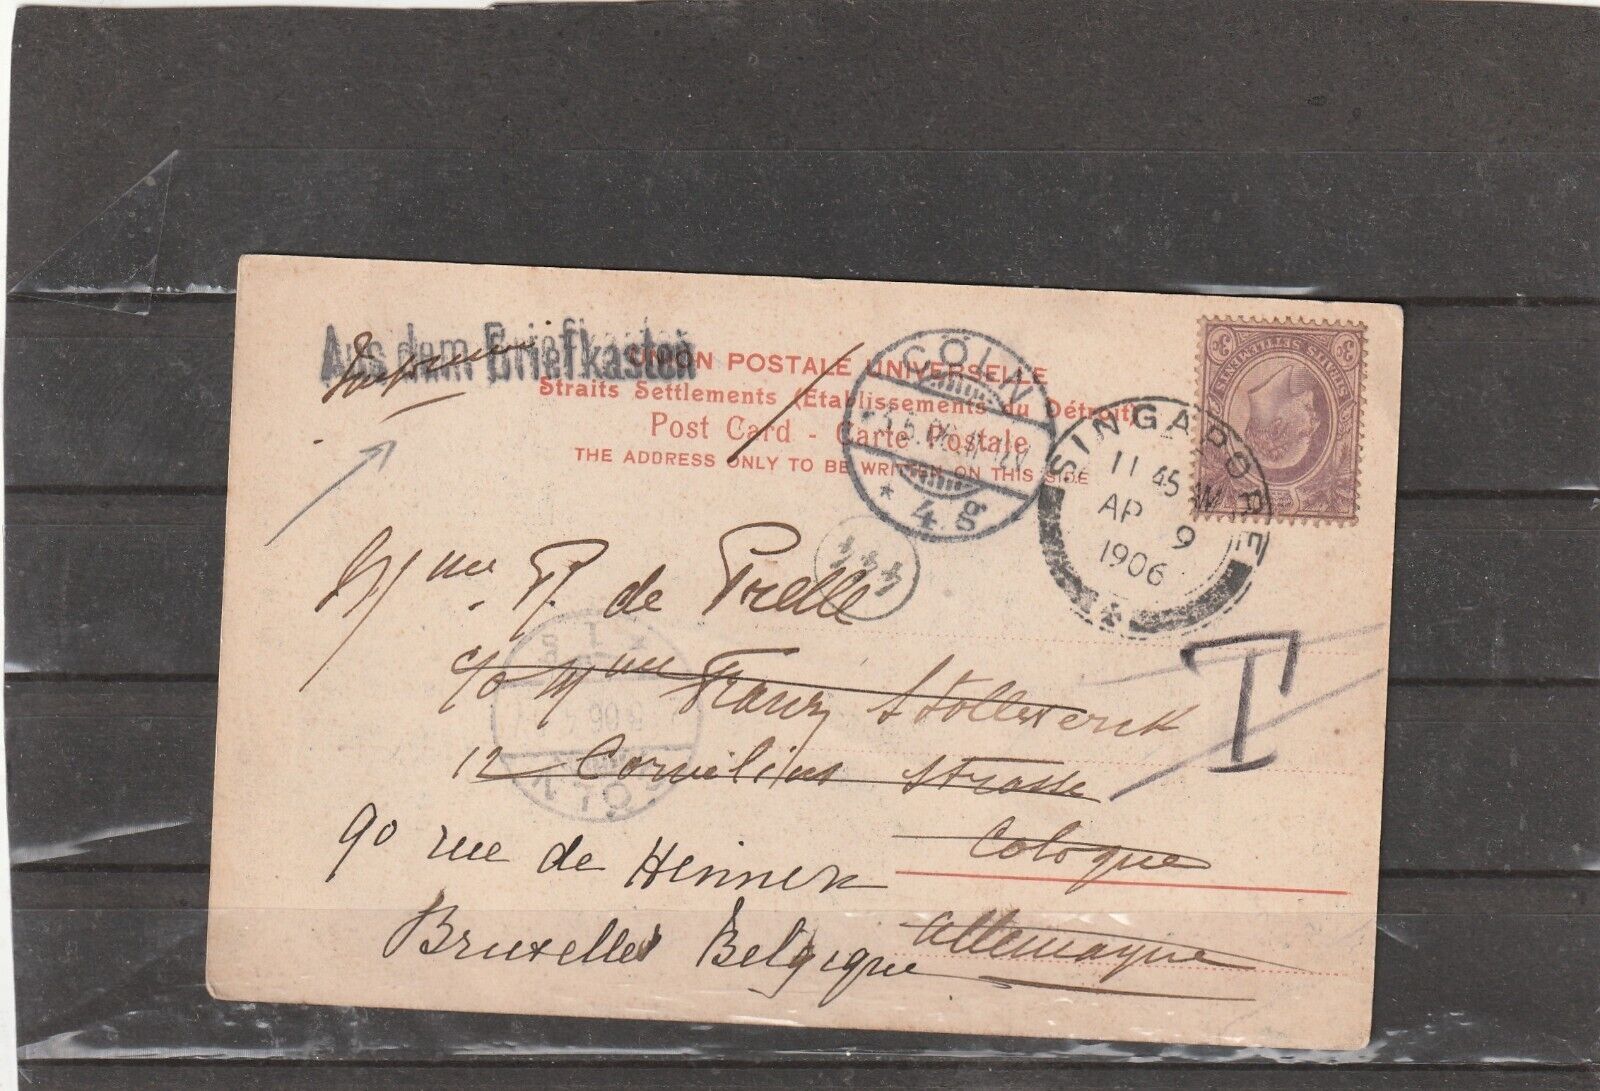 Aus dem Briefkasten
UNION POSTALE UNIVERSELLE
Straits Settlements (Etablissements du Détroit)
Post Card - Carte Postale
THE ADDRESS ONLY TO BE WRITTEN ON THIS SIDE
CÖLN
* 4g
SINGAPORE
11 45 AM
AP 9
1906
STRAITS SETTLEMENTS
3c
T
Mme P. de Prelle
c/o Mme Franz Stollwerck
12 Cornelius Strasse
Cologne
Allemagne
90 rue de Hennin
Bruxelles Belgique
CÖLN